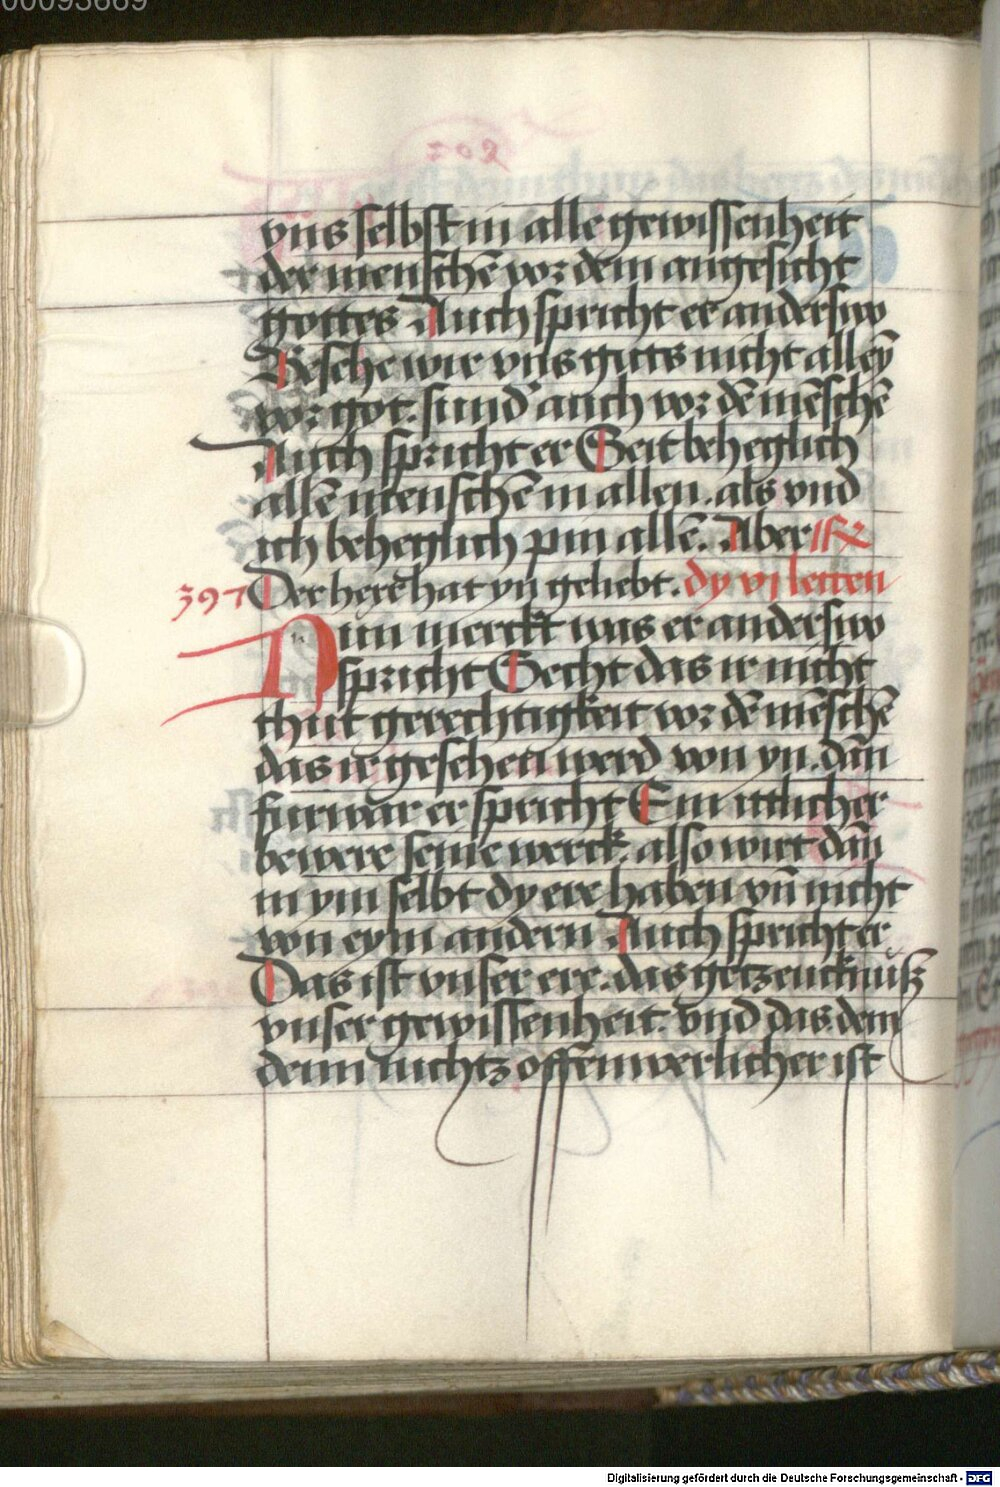 00093669
vns selbst in alle gewissenheit
der menschē vor dem angesicht
gottes Auch spricht er anderswo
Besehe wir vns guts nicht alleȳ
vor got. sund̄ auch vor dē mēschē
Auch spricht er Seit beheglich
allē menschē in allen. als vnd
ich beheglich pin allē. Aber
397 Der herr hat yn geliebt. dy vi letcen
Nun merckt was er anderswo
spricht Secht das ir nicht
thut gerechtigkeit vor dē mēschē
das ir gesehen werd von yn. dan̄
furwar er spricht Ein itlicher
bewere seine werck. also wirt dan̄
in ym selbt dy ere haben vn̄ nicht
von eym andern Auch spricht er
Das ist vnser ere. das getzeucknüsz
vnser gewissenheit. vnd das dem
denn nichtz offenwerlicher ist
Digitalisierung gefördert durch die Deutsche Forschungsgemeinschaft - DFG